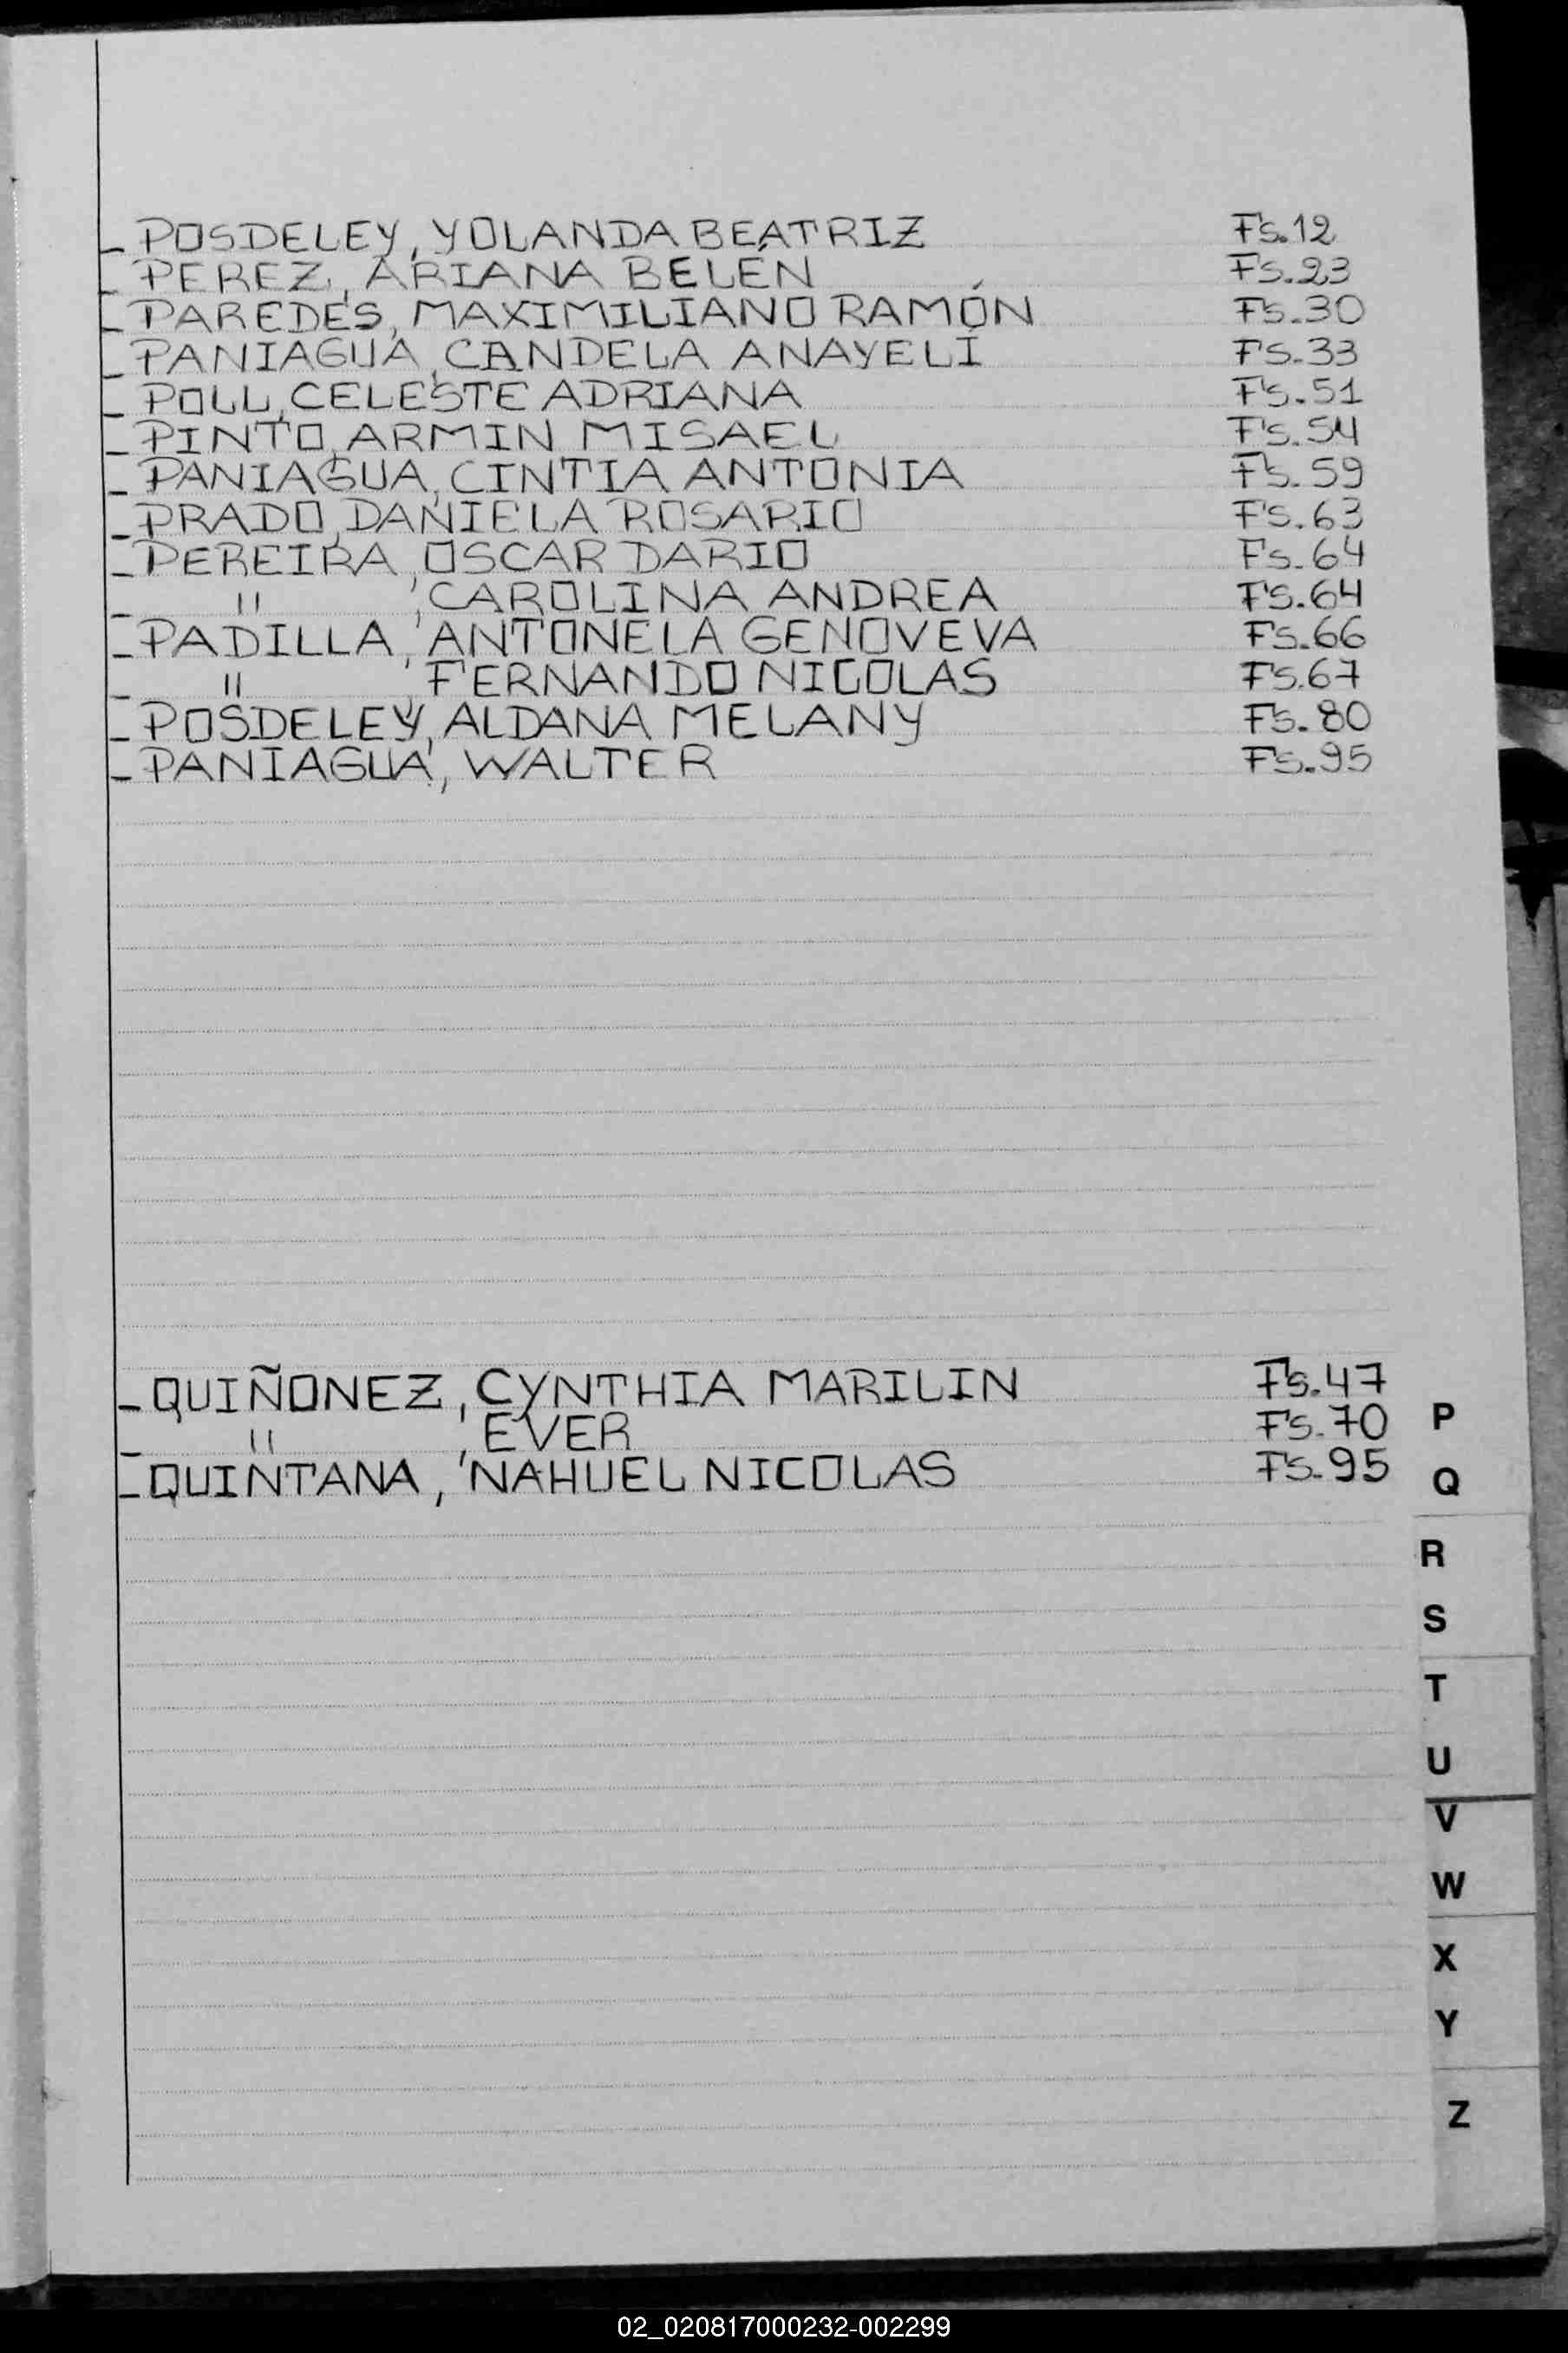 - POSDELEY, YOLANDA BEATRIZ Fs.12
- PEREZ, ARIANA BELÉN Fs.23
- PAREDES, MAXIMILIANO RAMÓN Fs.30
- PANIAGUA, CANDELA ANAYELÍ Fs.33
- POLL, CELESTE ADRIANA Fs.51
- PINTO, ARMIN MISAEL Fs.54
- PANIAGUA, CINTIA ANTONIA Fs.59
- PRADO, DANIELA ROSARIO Fs.63
- PEREIRA, OSCAR DARIO Fs.64
- " , CAROLINA ANDREA Fs.64
- PADILLA, ANTONELA GENOVEVA Fs.66
- " , FERNANDO NICOLAS Fs.67
- POSDELEY, ALDANA MELANY Fs.80
- PANIAGUA, WALTER Fs.95
- QUIÑONEZ, CYNTHIA MARILIN Fs.47
- " , EVER Fs.70
- QUINTANA, NAHUEL NICOLAS Fs.95
P
Q
R
S
T
U
V
W
X
Y
Z
02_020817000232-002299